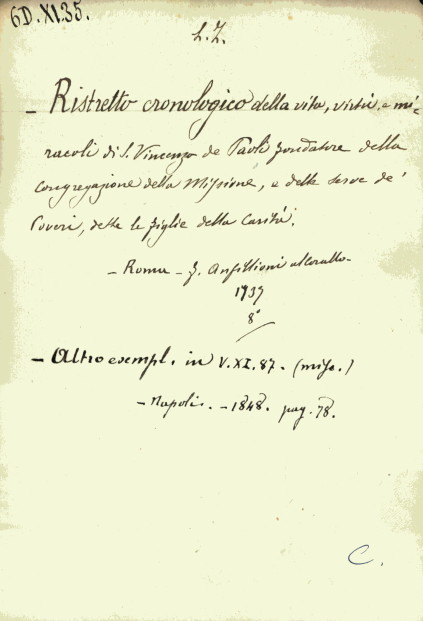 6D.XI.35.
L.Z.
- Ristretto cronologico della vita, virtù, e mi=
racoli di S. Vincenzo de Paoli fondatore della
Congregazione della Missione, e delle serve de'
Poveri, dette le figlie della Carità.
- Roma - f. Ansillioni al Corallo -
1737
8°
- Altro esempl. in V.XI.87. (misc.)
- Napoli. - 1848. pag. 78.
C.